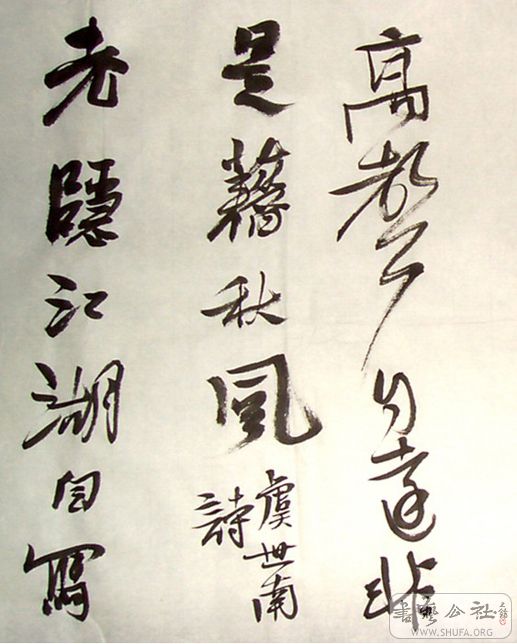 高聲自遠非
是藉秋風
虞世南
詩
老隱江湖自寫
書藝公社
WWW.SHUFA.ORG